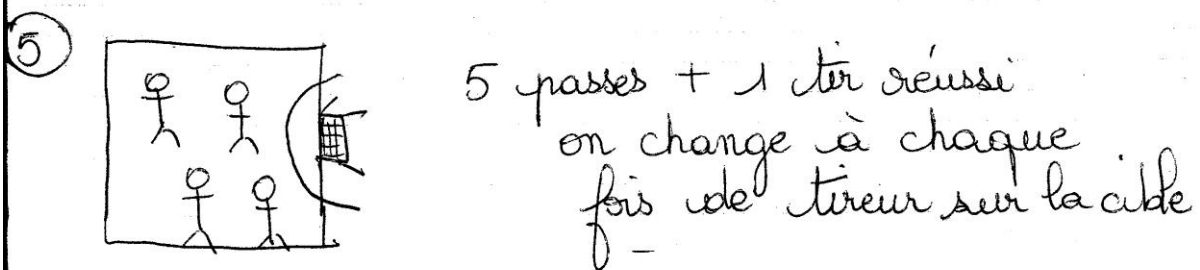 5
5 passes + 1 tir réussi
on change à chaque
fois de tireur sur la cible